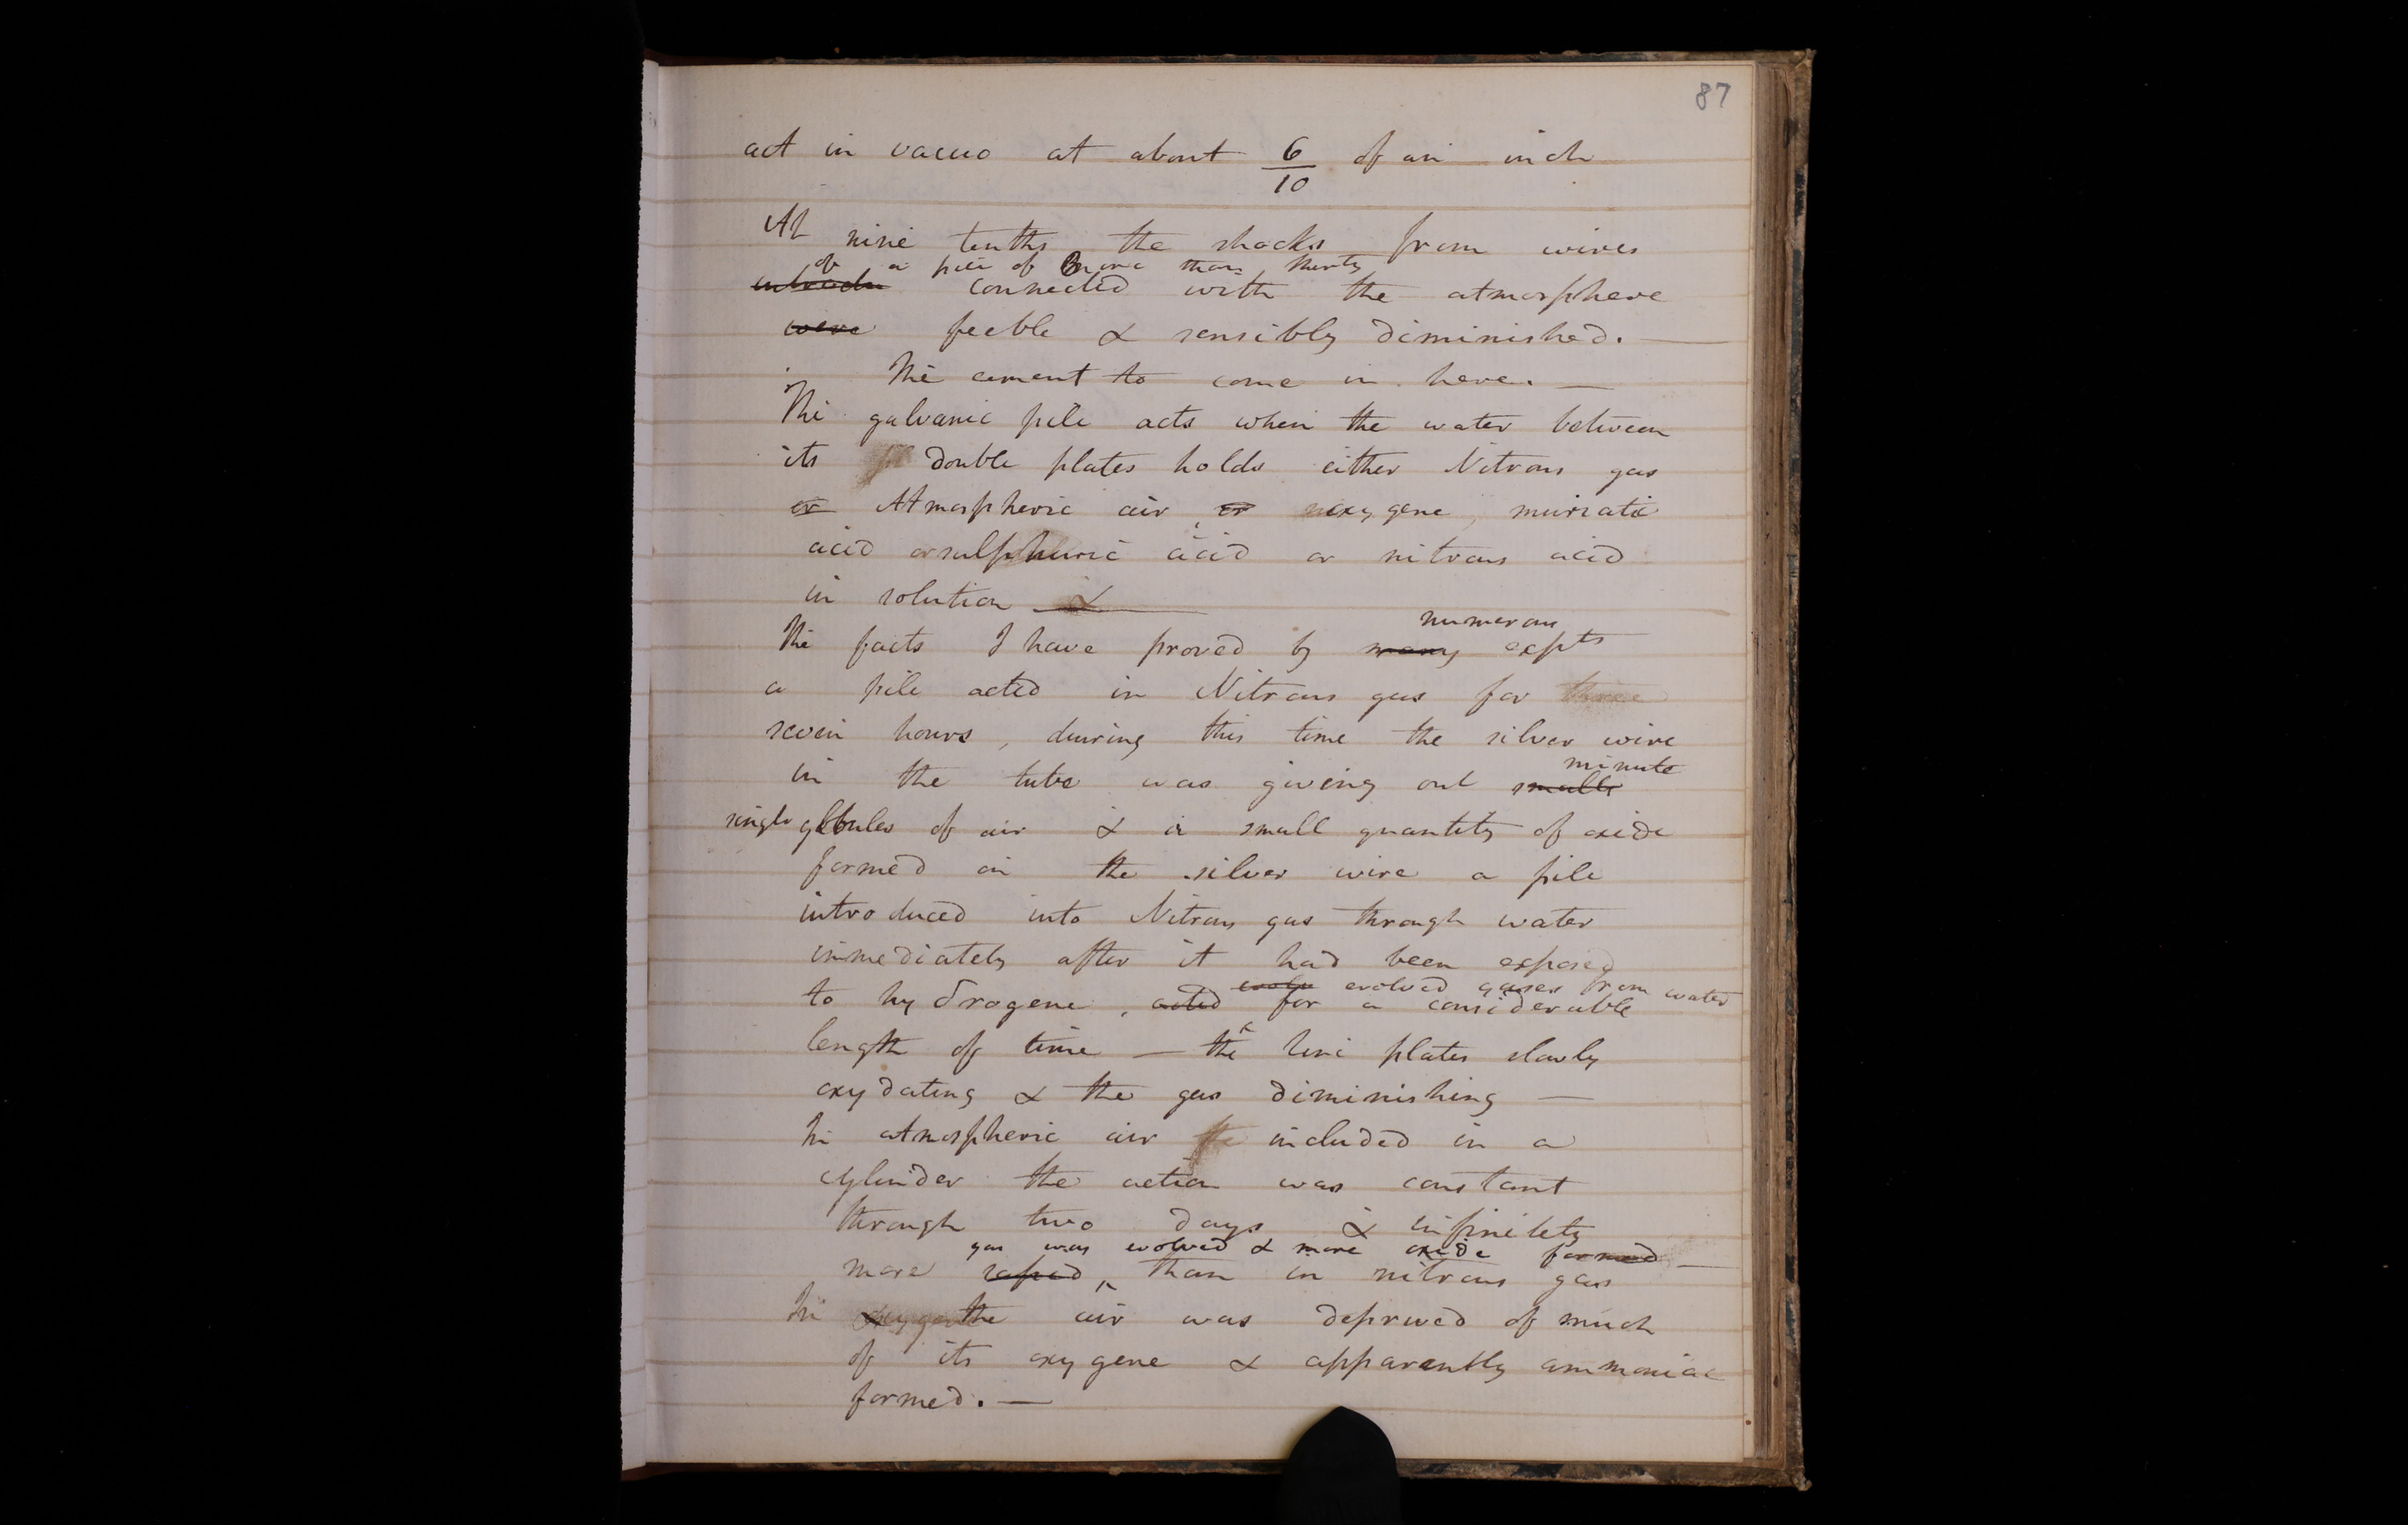 87
act in vacuo at about 6/10 of an inch
At nine tenths the shocks from wires
of a pile of more than thirty
introdu connected with the atmosphere
were feeble & sensibly diminished. —
The cement to come in here. —
The galvanic pile acts when the water between
its double plates holds either Nitrous gas
or Atmospheric air, or oxygene, muriatic
acid or sulphuric acid or nitrous acid
in solution &
numerous
The facts I have proved by many expts
a pile acted in Nitrous gas for three
seven hours, during this time the silver wire
minute
in the tube was giving out small
single globules of air & a small quantity of oxide
formed on the silver wire a pile
introduced into Nitrous gas through water
immediately after it had been exposed
evolve evolved gases from water
to hydrogene, acted for a considerable
length of time — the zinc plates slowly
oxydating & the gas diminishing —
In atmospheric air the included in a
cylinder the action was constant
through two days & infinitely
gas was evolved & more oxide formed —
more rapid ^ than in nitrous gas
In oxygene the air was deprived of much
of its oxygene & apparently ammoniac
formed. —